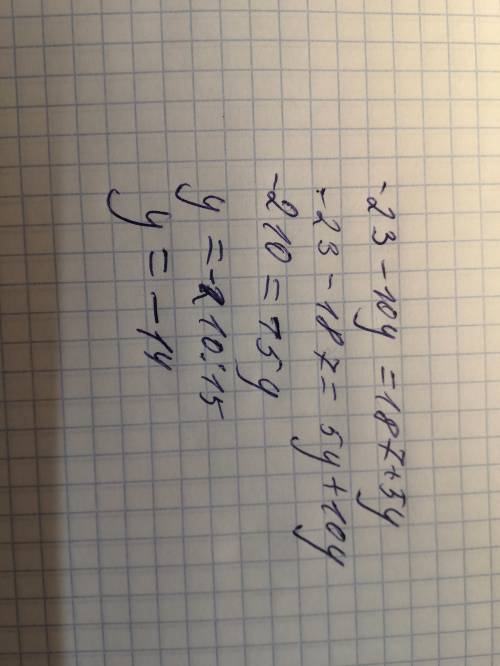 -23-10y=187+5y
-23-187=5y+10y
-210=15y
y=-210:15
y=-14